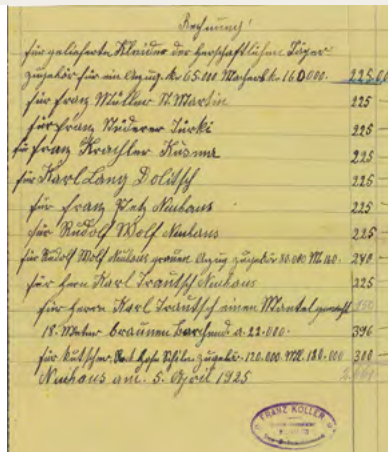 Rechnung!
für gelieferte Kleider der herschaftlichen Jäger
zugehör für ein Anzug K 65.000 Macherl. K 160.000. 225.00
für Franz Müller St Martin 225
für Franz Stüderer Türki 225
für Franz Krachler Kuzma 225
für Karl Lang Dolitsch 225
für Franz Petz Neuhaus 225
für Rudolf Wolf Neuhaus 225
für Rudolf Wolf Neuhaus grauen Anzug zugehör 80.000 Ml. 160. 240
für Hern Karl Trautsch Neuhaus 225
für Herrn Karl Trautsch einen Mantel gemacht
18. Meter braunen Barchend a. 22.000. 396
für Kutscher Rock Hose zugehör. 120.000. Ml. 180.000 300
Neuhaus am. 5. April 1925
FRANZ KOLLER